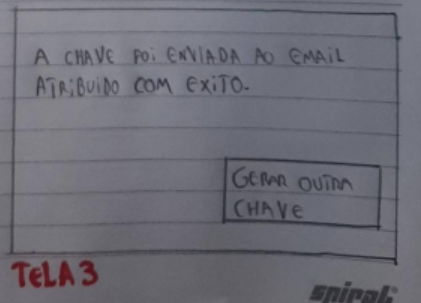 A CHAVE FOI ENVIADA AO EMAIL
ATRIBUIDO COM EXITO.
GERAR OUTRA
CHAVE
TELA 3
spiral